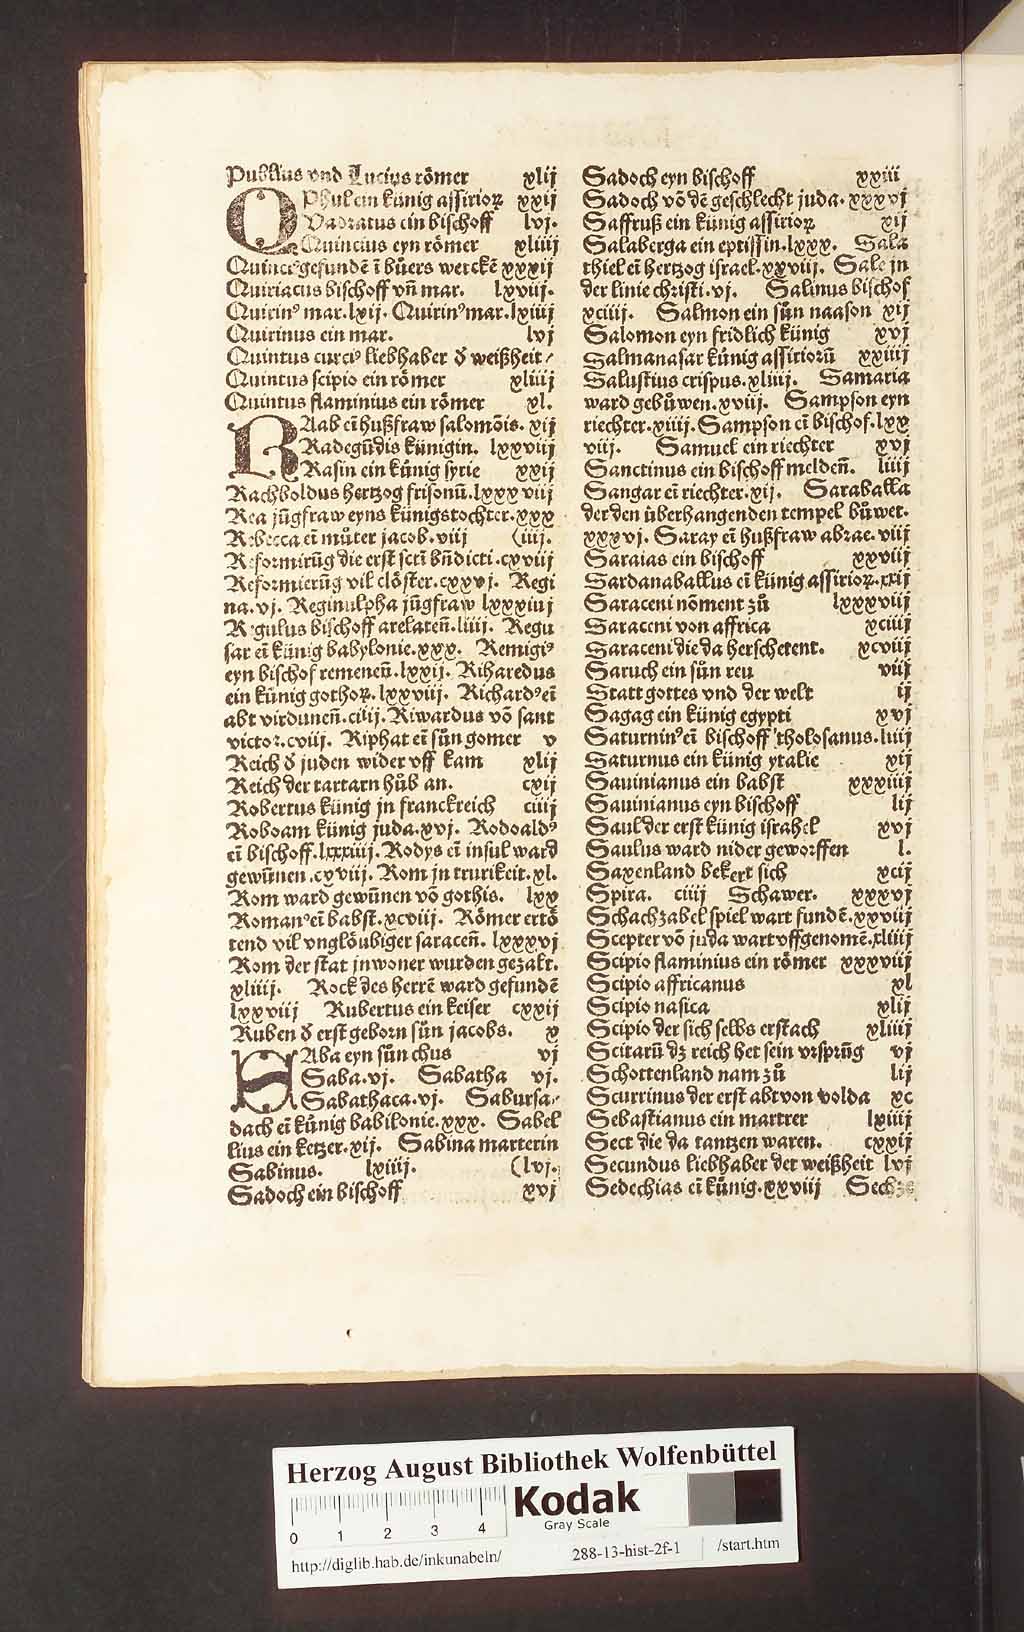 Publius vnd Lucius römer xlij
Phul ein künig assirioꝝ xxij
QVadratus ein bischoff lvj.
Quincius eyn römer xliiij
Quincꝰ gefundē ī bůers werckē xxxij
Quiriacus bischoff vñ mar. lxviij.
Quirinꝰ mar. lxij. Quirinꝰ mar. lxiiij
Quirinus ein mar. lvj
Quintus curciꝰ liebhaber ð weißheit
Quintus scipio ein römer xliiij
Quintus flaminius ein römer xl.
RAab eī hußfraw salomōis. xij
Radegūdis künigin. lxxviij
Rasin ein künig syrie xxij
Rachboldus hertzog frisonū. lxxxviij
Rea jūgfraw eyns künigs tochter. xxx
Rebecca eī můter jacob. viij (iij.
Reformirūg die erst scti bñdicti. cxviij
Reformierūg vil clöster. cxxvj. Regi
na. vj. Reginulpha jūgfraw lxxxiiij
Regulus bischoff arelateñ. liiij. Regu
sar eī künig babylonie. xxx. Remigiꝰ
eyn bischof remeneñ. lxxij. Riharedus
ein künig gothoꝝ. lxxviij. Richardꝰ eī
abt virduneñ. ciiij. Riwardus vō sant
victor. cviij. Riphat eī sůn gomer v
Reich ð juden wider vff kam xlij
Reich der tartarn hůb an. cxij
Robertus künig jn franckreich ciiij
Roboam künig juda. xvj. Rodoaldꝰ
eī bischoff. lxxxiiij. Rodys eī insul ward
gewūnen. cxviij. Rom jn trurikeit. xl.
Rom ward gewūnen vō gothis. lxx
Romanꝰ eī babst. xcviij. Römer ertö
tend vil vnglöubiger saraceñ. lxxxvj
Rom der stat jnwoner wurden gezalt.
xliiij. Rock des herrē ward gefundē
lxxviij Rubertus ein keiser cxxij
Ruben ð erst geborn sůn jacobs. x
SAba eyn sůn chus vj
Saba. vj. Sabatha vj.
Sabathaca. vj. Sabursa
dach eī künig babilonie. xxx. Sabel
lius ein ketzer. xij. Sabina marterin
Sabinus. lxiiij. (lvj.
Sadoch ein bischoff xvj
Sadoch eyn bischoff xxiii
Sadoch vō dē geschlecht juda. xxxvj
Saffruß ein künig assirioꝝ xij
Salaberga ein eptissin. lxxx. Sala
thiel eī hertzog israel. xxviij. Sale jn
der linie christi. vj. Salinus bischof
xciiij. Salmon ein sůn naason xij
Salomon eyn fridlich künig xvj
Salmanasar künig assiriorū xxiiij
Salustius crispus. xliiij. Samaria
ward gebůwen. xviij. Sampson eyn
riechter. xiiij. Sampson eī bischof. lxx
viij. Samuel ein riechter xvj
Sanctinus ein bischoff meldeñ. liiij
Sangar eī riechter. xij. Saraballa
der den überhangenden tempel bůwet.
xxxvj. Saray eī hußfraw abrae. viij
Saraias ein bischoff xxviij
Sardanaballus eī künig assirioꝝ. xxij
Saraceni nōment zů lxxxviij
Saraceni von affrica xciiij
Saraceni die da herschetent. xcviij
Saruch ein sůn reu viij
Statt gottes vnd der welt ij
Sagag ein künig egypti xvj
Saturninꝰ eī bischoff tholosanus. liiij
Saturnus ein künig ytalie xij
Sauinianus ein babst xxxiiij
Sauinianus eyn bischoff lij
Saul der erst künig israhel xvj
Saulus ward nider geworffen l.
Saxenland bekert sich xcij
Spira. ciiij Schawer. xxxvj
Schachzabel spiel wart fundē. xxviij
Scepter vō juda wart vffgenomē. xliiij
Scipio flaminius ein römer xxxviij
Scipio affricanus xl
Scipio nasica xlij
Scipio der sich selbs erstach xliiij
Scitarū dz reich het sein vrsprūg vj
Schottenland nam zů lij
Scurrinus der erst abt von volda xc
Sebastianus ein martrer lxiiij
Sect die da tantzen waren. cxxij
Secundus liebhaber der weißheit lvj
Sedechias eī künig. xxviij
Herzog August Bibliothek Wolfenbüttel
Kodak
Gray Scale
0 1 2 3 4
http://diglib.hab.de/inkunabeln/ 288-13-hist-2f-1 /start.htm